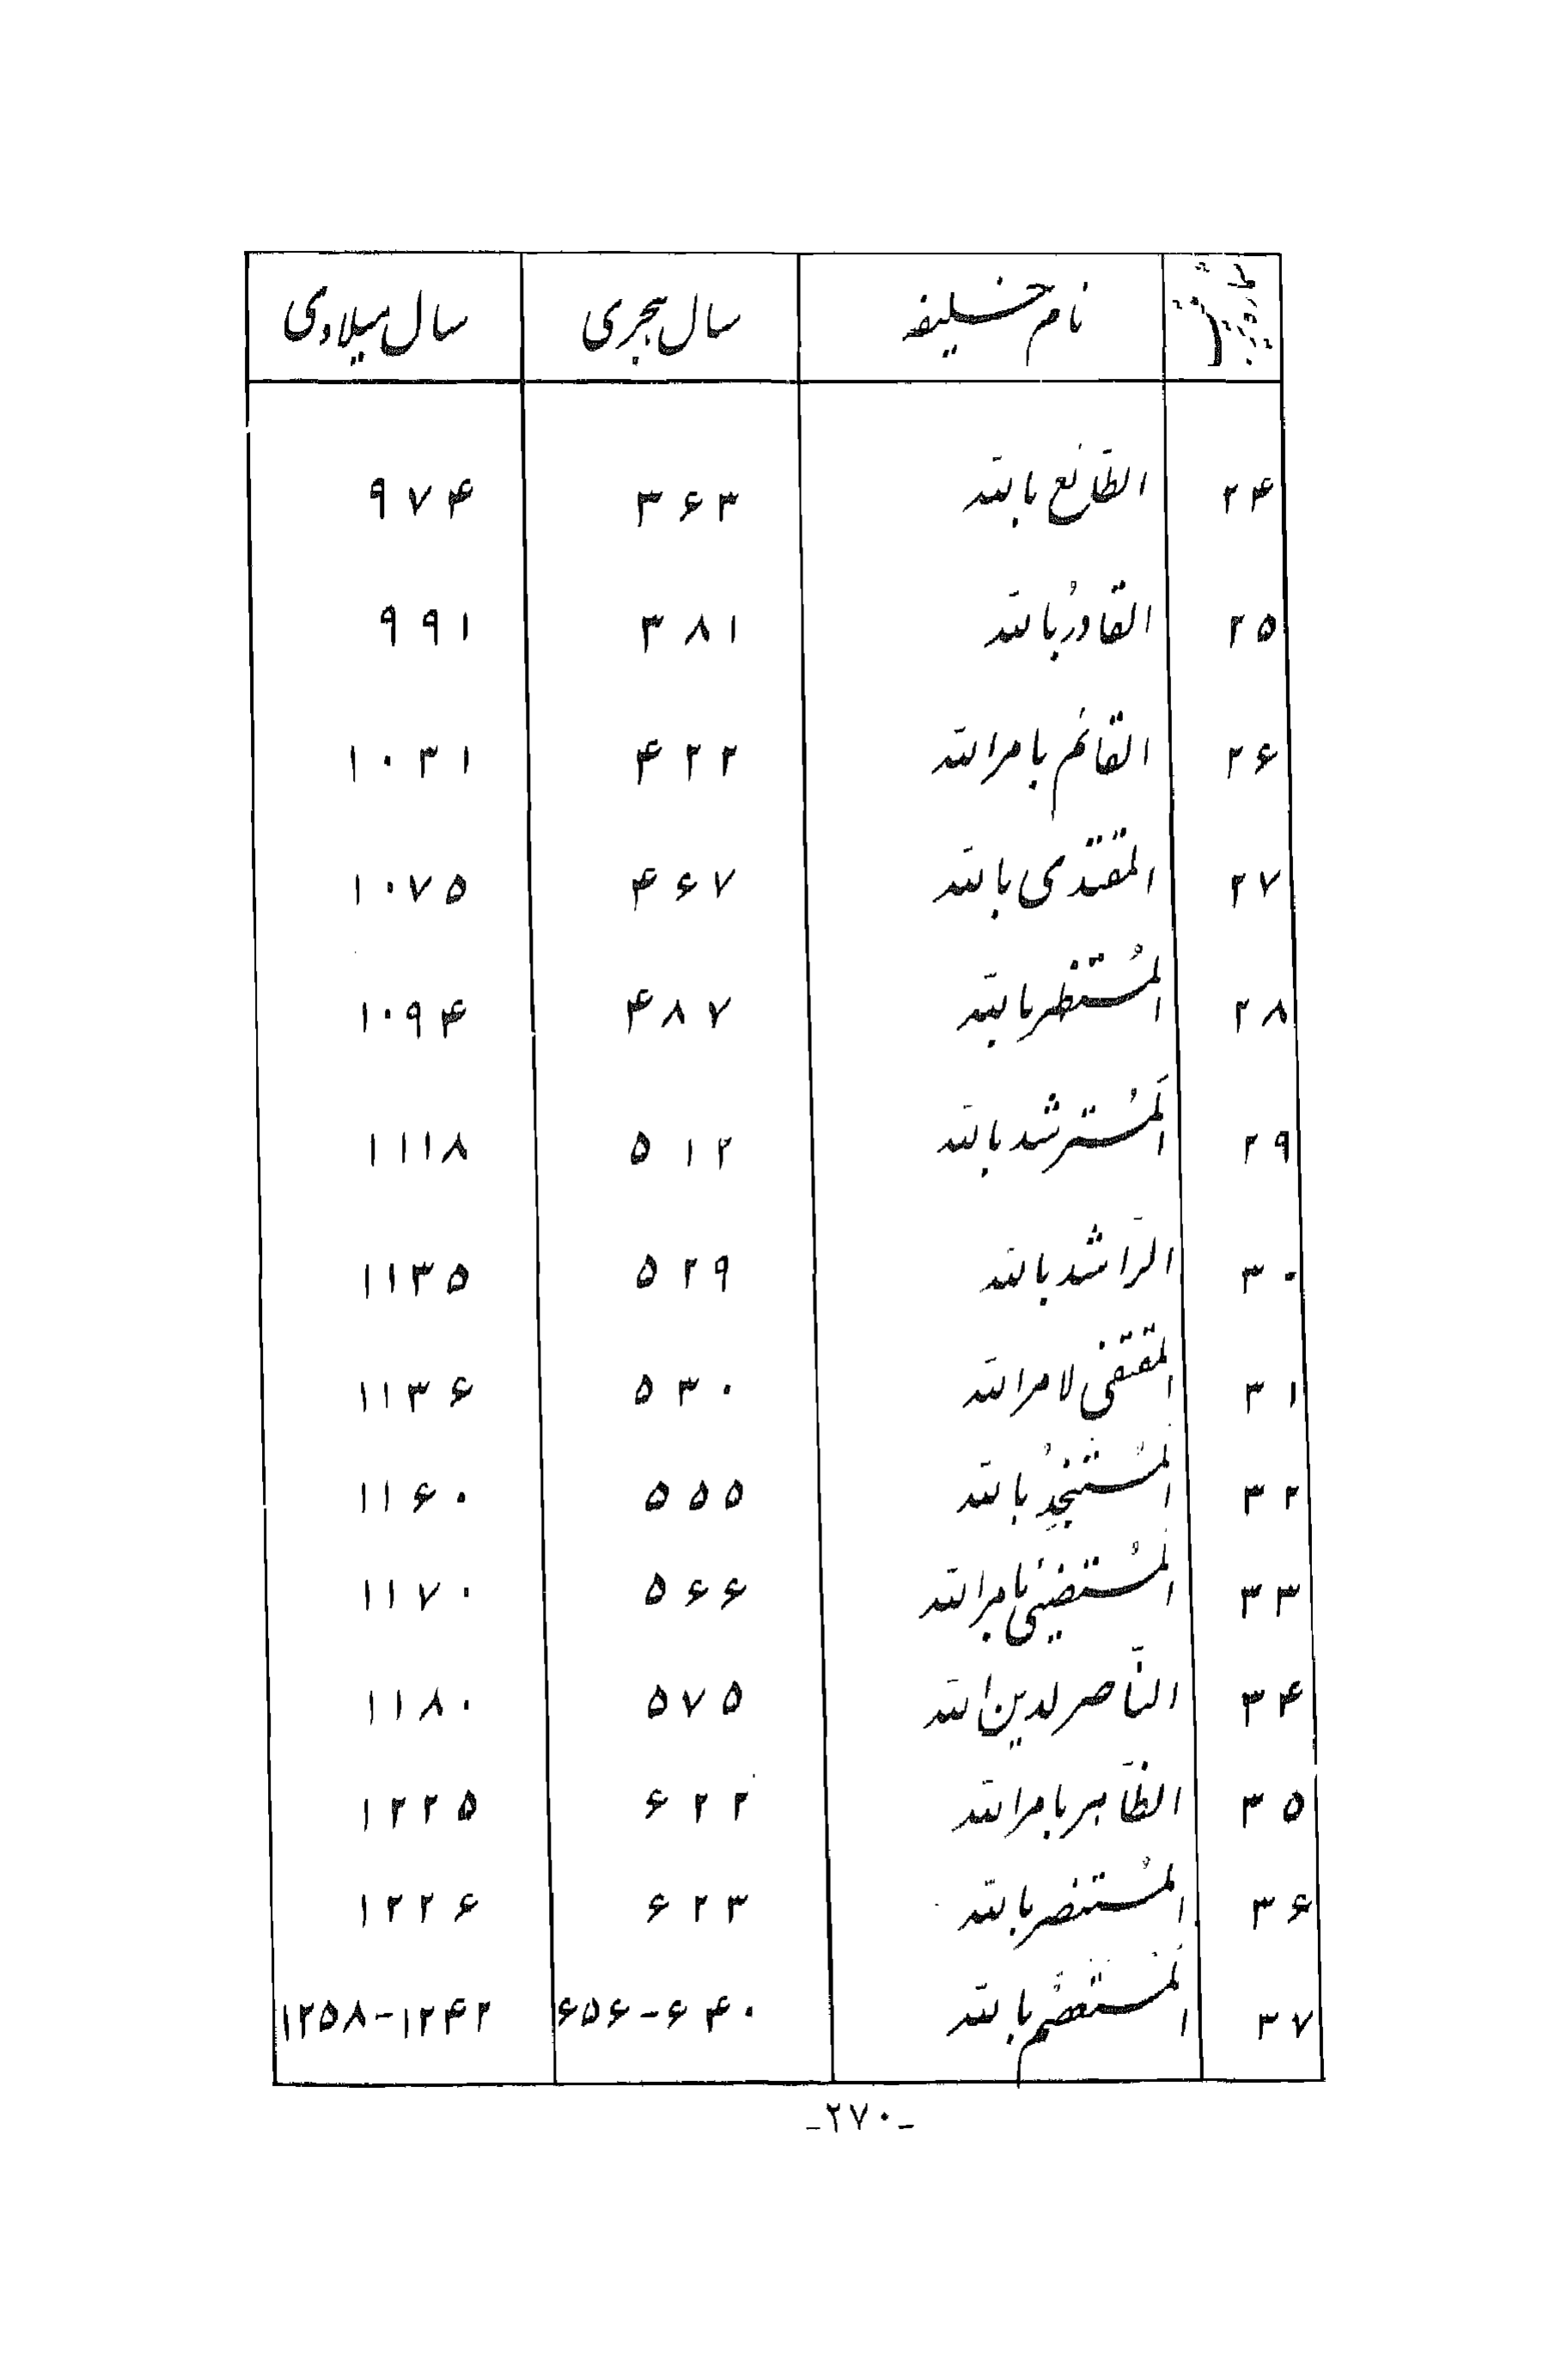 نام خلیفه سال هجری سال میلادی
۲۴ الطّائع بالله ۳۶۳ ۹۷۴
۲۵ القادرُ بالله ۳۸۱ ۹۹۱
۲۶ القائم بامرالله ۴۲۲ ۱۰۳۱
۲۷ المقتدی بالله ۴۶۷ ۱۰۷۵
۲۸ المُستظهر بالله ۴۸۷ ۱۰۹۴
۲۹ المُسترشد بالله ۵۱۲ ۱۱۱۸
۳۰ الرّاشد بالله ۵۲۹ ۱۱۳۵
۳۱ المقتفی لامرالله ۵۳۰ ۱۱۳۶
۳۲ المُستنجِدُ بالله ۵۵۵ ۱۱۶۰
۳۳ المُستضیئی بامرالله ۵۶۶ ۱۱۷۰
۳۴ النّاصر لدین الله ۵۷۵ ۱۱۸۰
۳۵ الظّاهر بامرالله ۶۲۲ ۱۲۲۵
۳۶ المُستنصر بالله ۶۲۳ ۱۲۲۶
۳۷ المُستعصم بالله ۶۴۰-۶۵۶ ۱۲۴۲-۱۲۵۸
-۲۷۰-